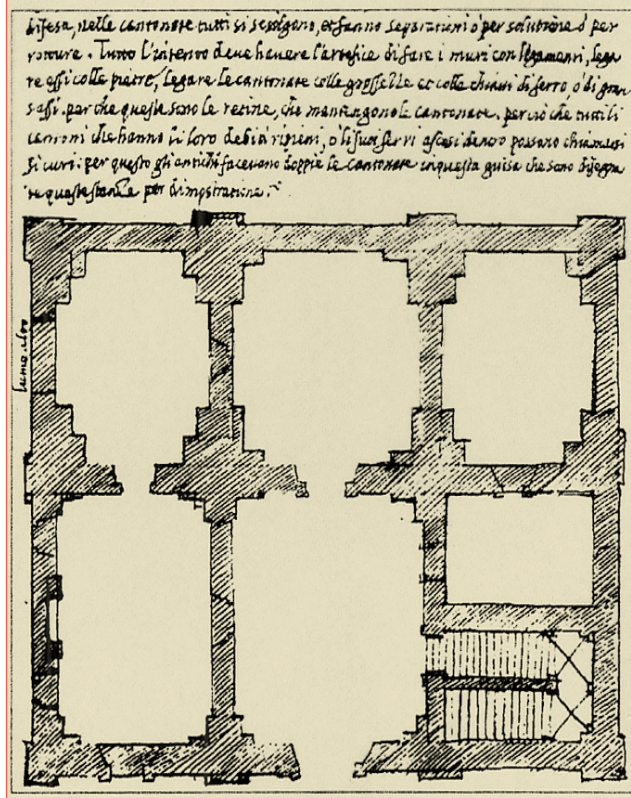 difesa, nelle cantonate tutti si sciolgono, et fanno separationi ò per solutione ò per
rotture. Tutto l'intento deve havere l'artefice di fare i muri con legamenti, lega
re essi colle pietre, legare le cantonate colle grosselle et colle chiavi di ferro, ò di gran
sassi. perche queste sono le retine, che mantengono le cantonate. perciò che tutti li
cantoni che hanno li loro debiti ripieni, o li suoi ferri ascosi dentro possono chiamarsi
sicuri. per questo gli antichi facevano doppie le cantonate in questa guisa che sono disegna
te queste stanze per dimostratione.